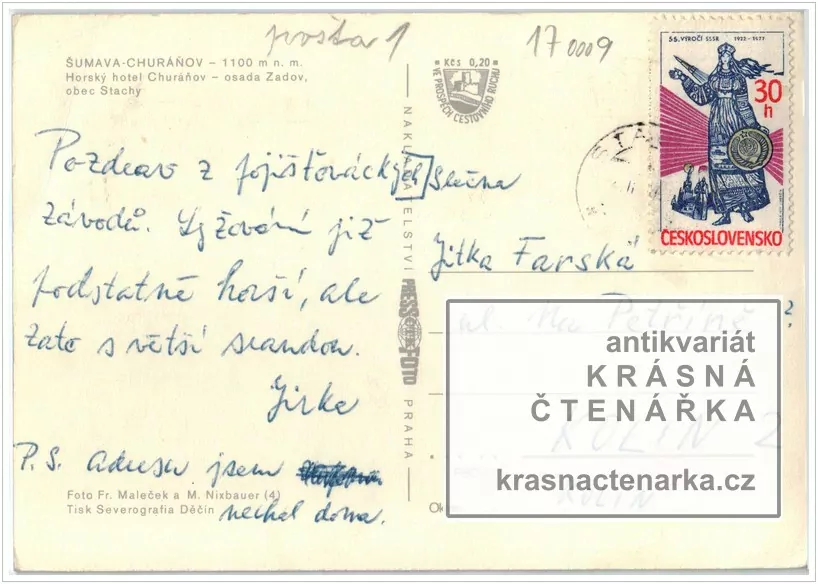 pošta 1
17 0009
ŠUMAVA-CHURÁŇOV – 1100 m n. m.
Horský hotel Churáňov – osada Zadov,
obec Stachy
Kčs 0,20
VE PROSPĚCH CESTOVNÍHO RUCHU
55. VÝROČÍ SSSR 1922-1977
30 h
ČESKOSLOVENSKO
Pozdrav z pojišťováckých
závodů. Lyžování již
podstatně horší, ale
zato s větší srandou.
Jirka
P.S. Adresu jsem
nechal doma.
Foto Fr. Maleček a M. Nixbauer (4)
Tisk Severografia Děčín
NAKLADATELSTVÍ PRESSFOTO PRAHA
Slečna
Jitka Farská
ul. Na Petříně
KOLÍN 2
KOLÍN
antikvariát
KRÁSNÁ
ČTENÁŘKA
krasnactenarka.cz